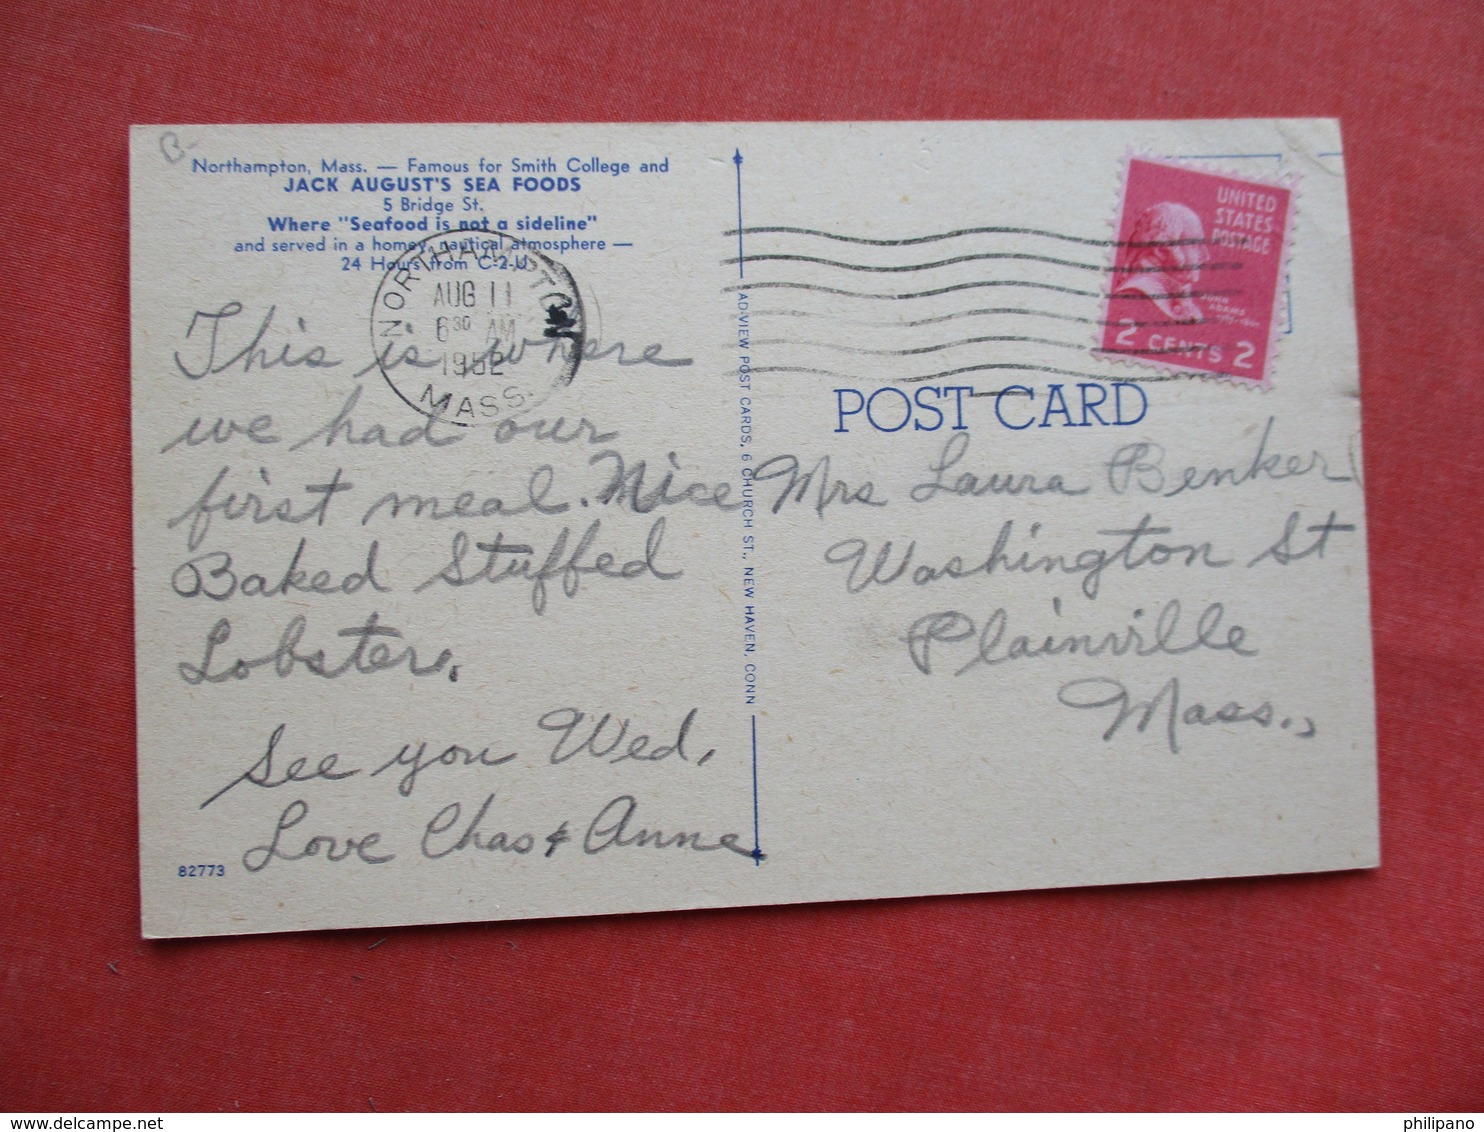 B-
Northampton, Mass. — Famous for Smith College and
JACK AUGUST'S SEA FOODS
5 Bridge St.
Where "Seafood is not a sideline"
and served in a homey, nautical atmosphere —
24 Hours from C-2-U
NORTHAMPTON
AUG 11
6 30 AM
1952
MASS.
This is where
we had our
first meal. Nice
Baked Stuffed
Lobsters.
See you Wed,
Love Chas & Anne
82773
AD-VIEW POST CARDS, 6 CHURCH ST., NEW HAVEN, CONN
UNITED
STATES
POSTAGE
JOHN
ADAMS
2 CENTS 2
POST CARD
Mrs Laura Benker
Washington St
Plainville
Mass.,
www.delcampe.net
philipano